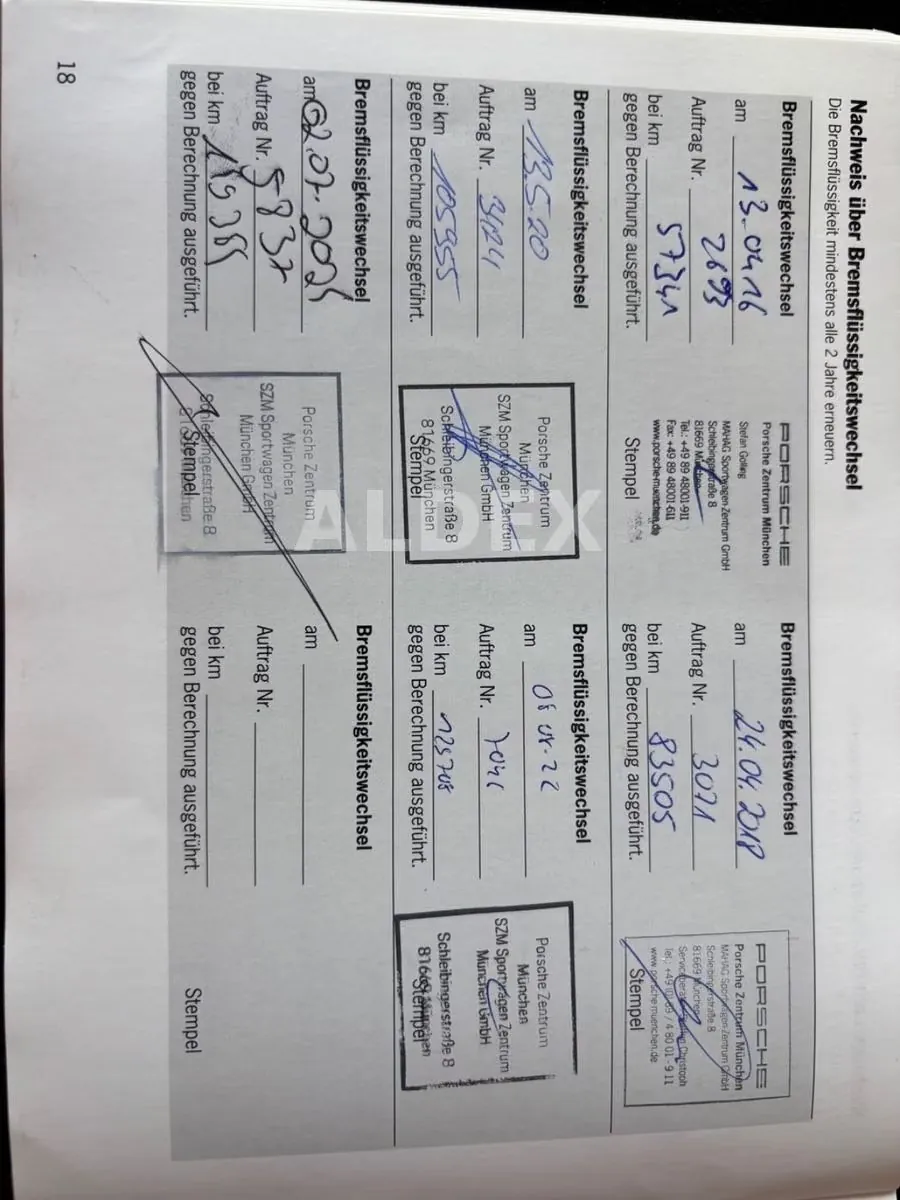 Nachweis über Bremsflüssigkeitswechsel
Die Bremsflüssigkeit mindestens alle 2 Jahre erneuern.
Bremsflüssigkeitswechsel
am 13.04.16
Auftrag Nr. 2693
bei km 57341
gegen Berechnung ausgeführt.
PORSCHE
Porsche Zentrum München
Stefan Golling
MAHAG Sportwagen-Zentrum GmbH
Schleibingerstraße 8
81669 München
Tel.: +49 89 48001-911
Fax: +49 89 48001-611
www.porsche-muenchen.de
Stempel
Bremsflüssigkeitswechsel
am 24.04.2018
Auftrag Nr. 3071
bei km 83505
gegen Berechnung ausgeführt.
PORSCHE
Porsche Zentrum München
MAHAG Sportwagen-Zentrum GmbH
Schleibingerstraße 8
81669 München
Christoph
Tel.: +49 (0) 89 / 4 80 01 - 9 11
www.porsche-muenchen.de
Stempel
Bremsflüssigkeitswechsel
am 13.5.20
Auftrag Nr. 3424
bei km 105955
gegen Berechnung ausgeführt.
Porsche Zentrum
München
SZM Sportwagen Zentrum
München GmbH
Schleibingerstraße 8
81669 München
Stempel
Bremsflüssigkeitswechsel
am
Auftrag Nr.
bei km 125708
gegen Berechnung ausgeführt.
Porsche Zentrum
München
SZM Sportwagen Zentrum
München GmbH
Schleibingerstraße 8
81669 München
Stempel
Bremsflüssigkeitswechsel
am 02.07.2025
Auftrag Nr. 5837
bei km
gegen Berechnung ausgeführt.
Porsche Zentrum
München
SZM Sportwagen Zentrum
München GmbH
Schleibingerstraße 8
81669 München
Stempel
Bremsflüssigkeitswechsel
am
Auftrag Nr.
bei km
gegen Berechnung ausgeführt.
Stempel
18
ALDEX